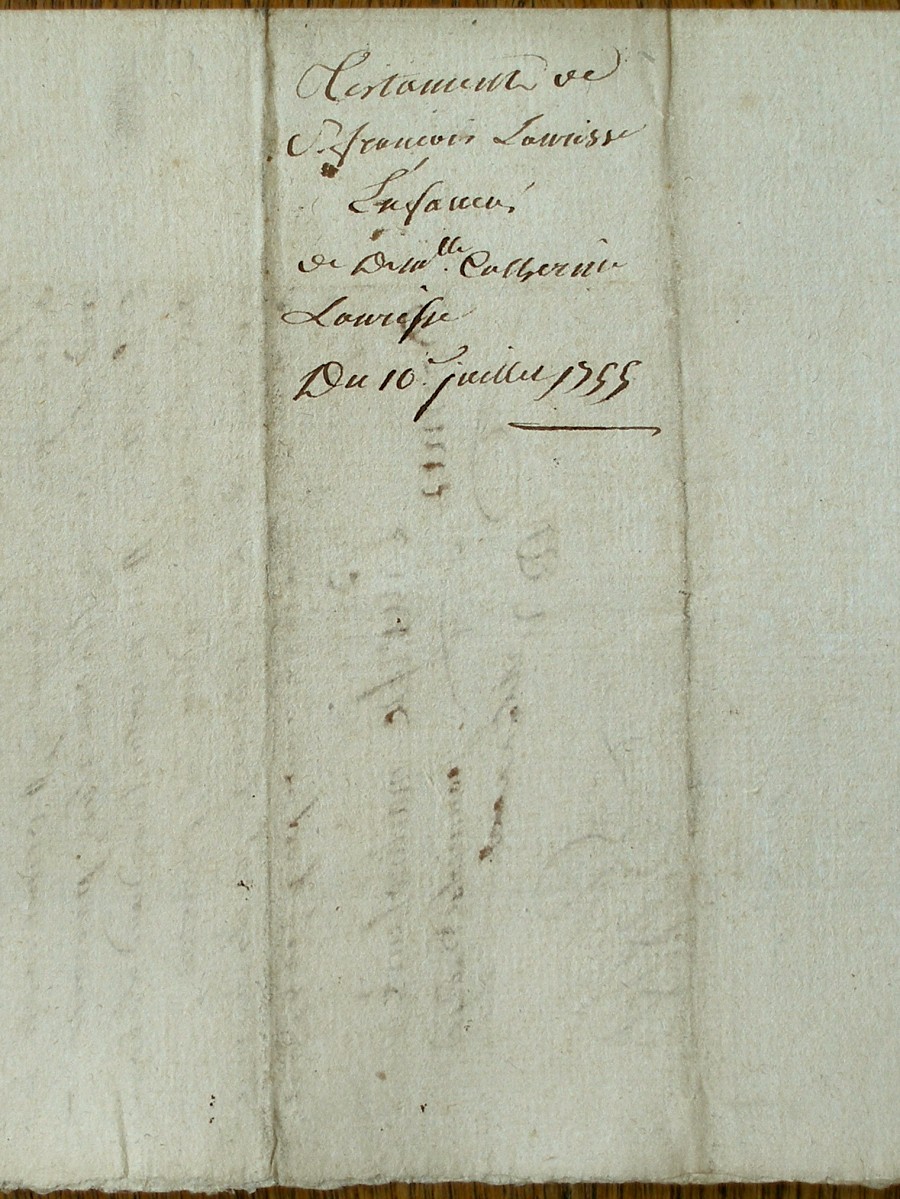 Testament de
Sr. françois Lourisse
En faveur
de Demlle. Catherine
Lourisse
Du 10e. juillet 1755